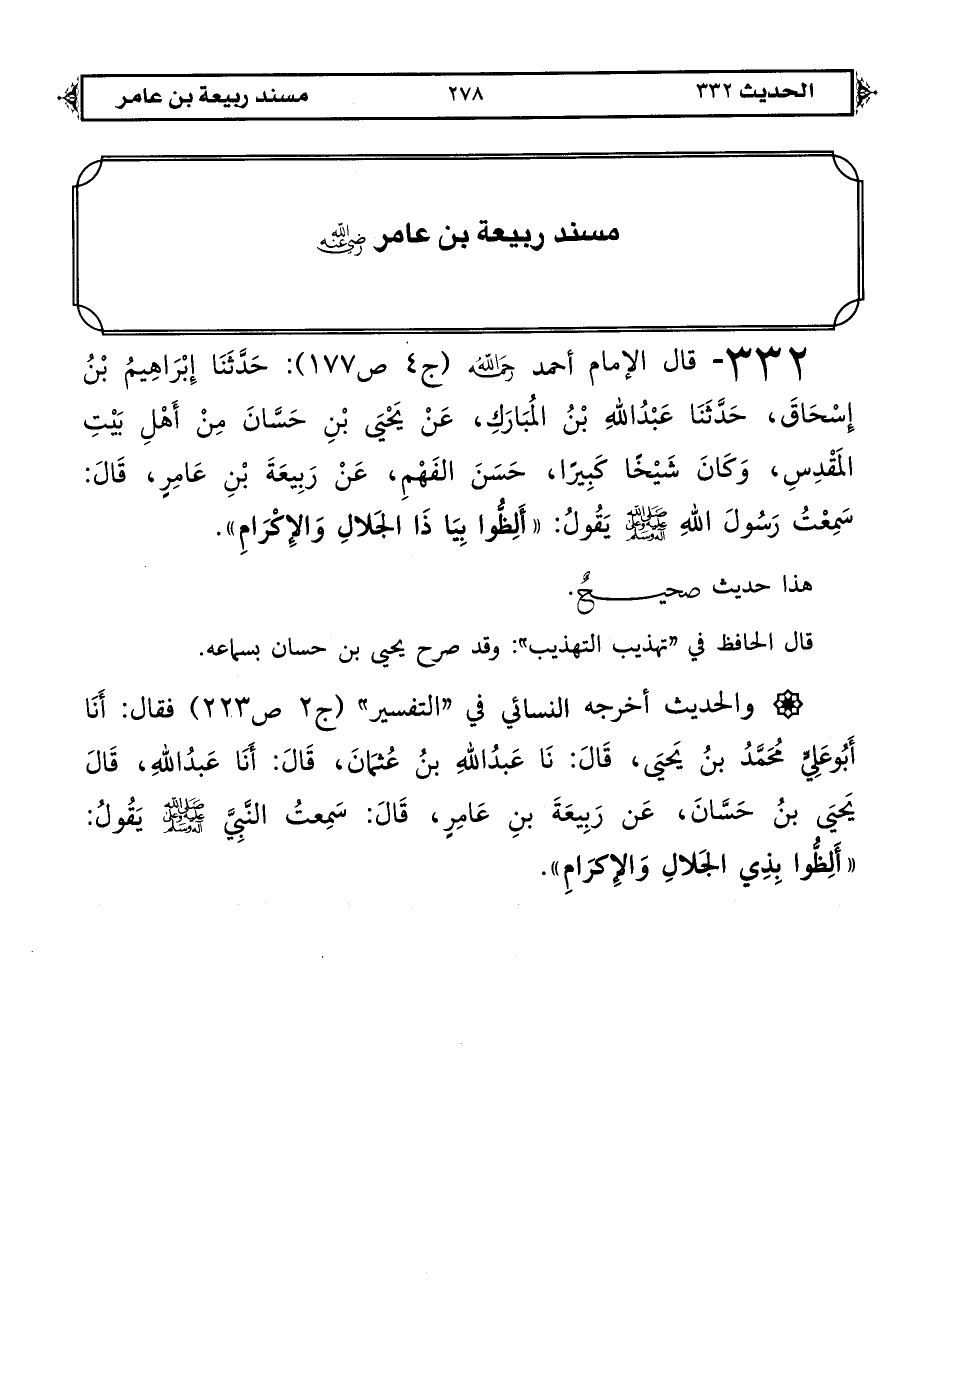 الحديث ٣٣٢ ٢٧٨ مسند ربيعة بن عامر
مسند ربيعة بن عامر رضي الله عنه
٣٣٢- قال الإمام أحمد رحمه الله (ج٤ ص١٧٧): حَدَّثَنَا إِبْرَاهِيمُ بْنُ
إِسْحَاقَ، حَدَّثَنَا عَبْدُاللهِ بْنُ المُبَارَكِ، عَنْ يَحْيَى بْنِ حَسَّانَ مِنْ أَهْلِ بَيْتِ
المَقْدِسِ، وَكَانَ شَيْخًا كَبِيرًا، حَسَنَ الفَهْمِ، عَنْ رَبِيعَةَ بْنِ عَامِرٍ، قَالَ:
سَمِعْتُ رَسُولَ اللهِ ﷺ يَقُولُ: «أَلِظُّوا بِيَا ذَا الجَلالِ وَالإِكْرَامِ».
هذا حديث صحيحٌ.
قال الحافظ في "تهذيب التهذيب": وقد صرح يحيى بن حسان بسماعه.
۞ والحديث أخرجه النسائي في "التفسير" (ج٢ ص٢٢٣) فقال: أَنَا
أَبُوعَلِيٍّ مُحَمَّدُ بنُ يَحيَى، قَالَ: نَا عَبدُاللهِ بنُ عُثمَانَ، قَالَ: أَنَا عَبدُاللهِ، قَالَ
يَحيَى بنُ حَسَّانَ، عَن رَبِيعَةَ بنِ عَامِرٍ، قَالَ: سَمِعتُ النَّبِيَّ ﷺ يَقُولُ:
«أَلِظُّوا بِذِي الجَلالِ وَالإِكرَامِ».